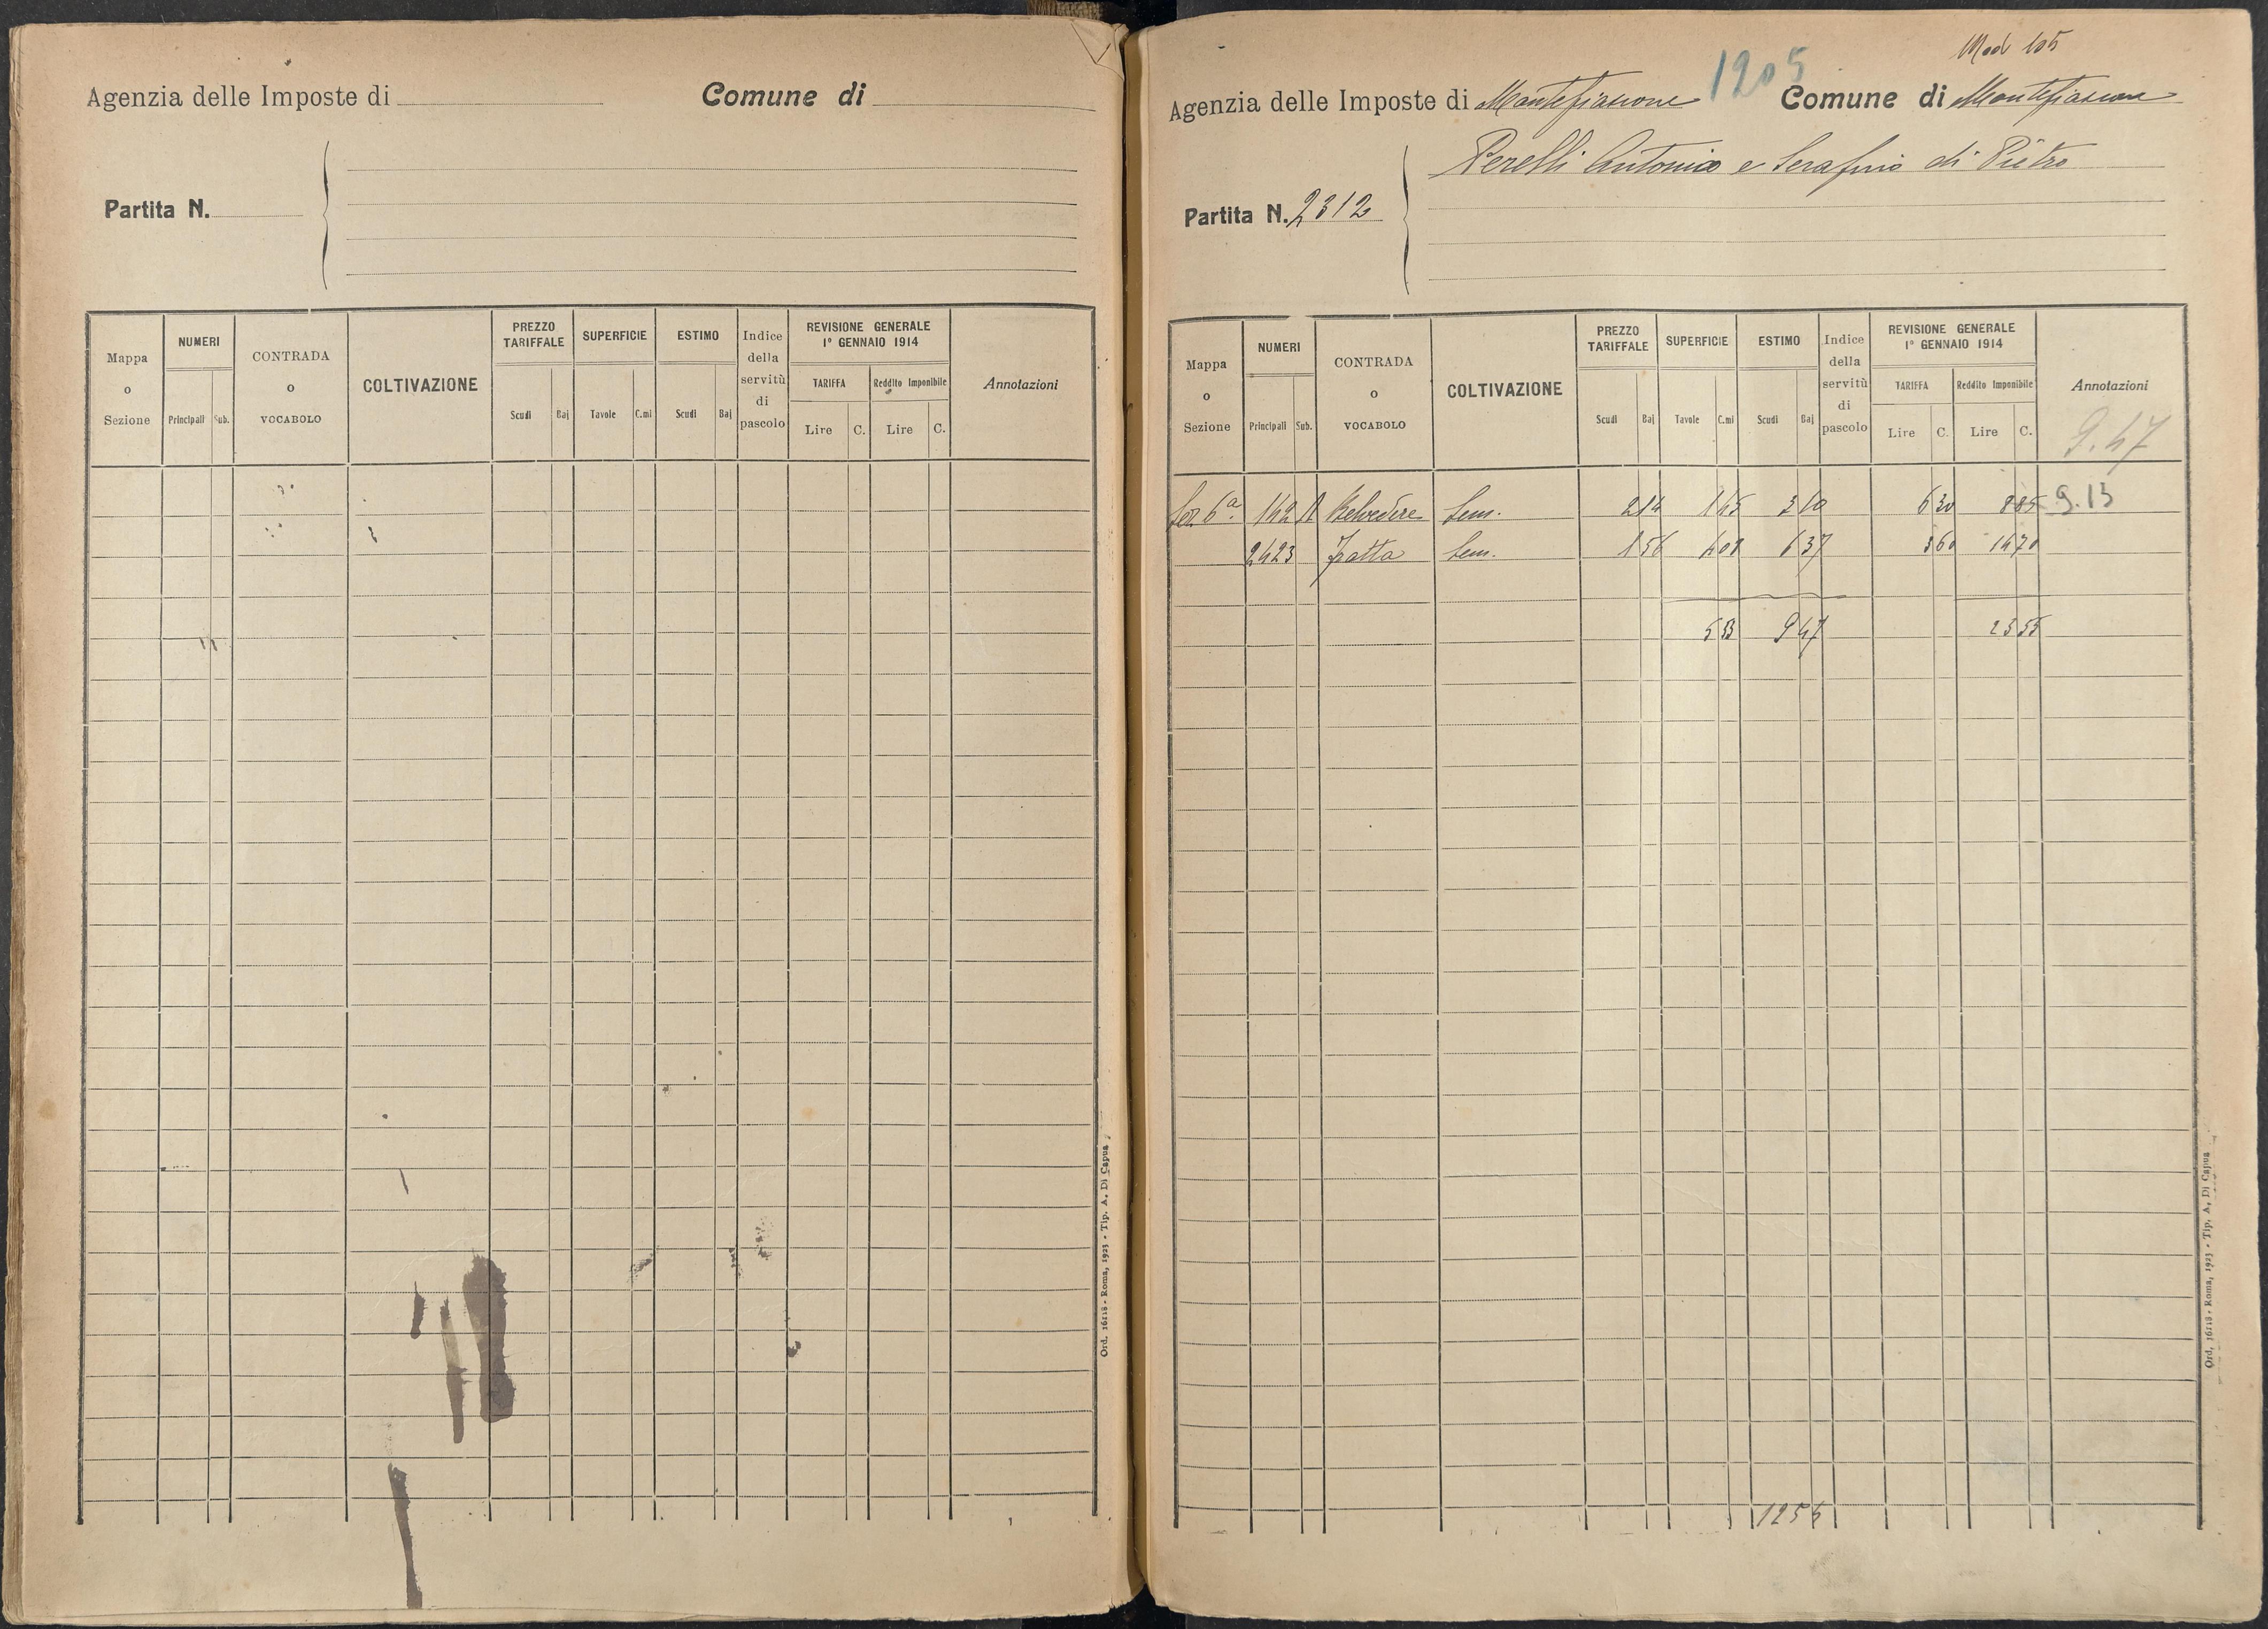 Agenzia delle Imposte di Comune di
Partita N.
Mappa o Sezione NUMERI Principali Sub. CONTRADA o VOCABOLO COLTIVAZIONE PREZZO TARIFFALE Scudi Baj SUPERFICIE Tavole C.mi ESTIMO Scudi Baj Indice della servitù di pascolo REVISIONE GENERALE 1º GENNAIO 1914 TARIFFA Lire C. Reddito Imponibile Lire C. Annotazioni
Ord. 16118 - Roma, 1923 - Tip. A. Di Capua
Mod 105
1205
Agenzia delle Imposte di Montefiascone Comune di Montefiascone
Perelli Antonio e Serafino di Pietro
Partita N. 2312
Mappa o Sezione NUMERI Principali Sub. CONTRADA o VOCABOLO COLTIVAZIONE PREZZO TARIFFALE Scudi Baj SUPERFICIE Tavole C.mi ESTIMO Scudi Baj Indice della servitù di pascolo REVISIONE GENERALE 1º GENNAIO 1914 TARIFFA Lire C. Reddito Imponibile Lire C. Annotazioni
9.47
Sez. 6ª 142 Belvedere Sem. 2 14 1 45 3 10 6 30 8 85 9.13
2423 Sem. 1 56 4 08 6 37 3 60 14 70
5 53 9 47 23 55
Ord. 16118 - Roma, 1923 - Tip. A. Di Capua